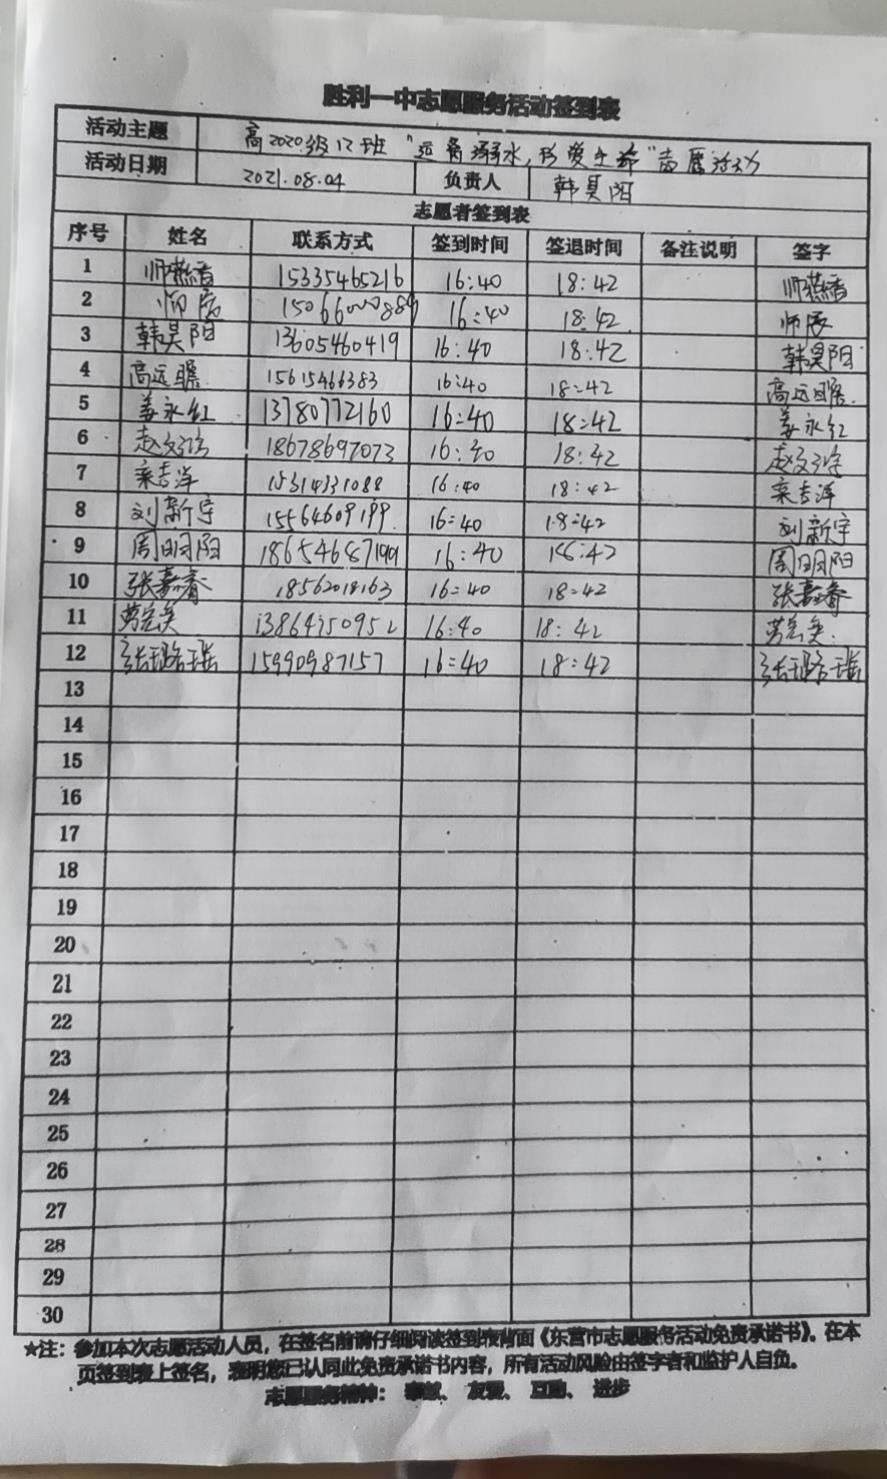 胜利一中志愿服务活动签到表
活动主题 高2020级12班“远离溺水,珍爱生命”志愿活动
活动日期 2021.08.04 负责人 韩昊阳
志愿者签到表
序号 姓名 联系方式 签到时间 签退时间 备注说明 签字
1 15335465216 16:40 18:42
2 师宸 16:40 18:42 师宸
3 韩昊阳 13605460419 16:40 18:42 韩昊阳
4 高远瞻 15615466383 16:40 18:42 高远瞻
5 姜永红 13780772160 16:40 18:42 姜永红
6 18678697073 16:40 18:42
7 栾吉洋 15314331088 16:40 18:42 栾吉洋
8 刘新宇 15564609199 16:40 18:42 刘新宇
9 周明阳 16:40 周明阳
10 张嘉睿 18562018163 16:40 18:42 张嘉睿
11 16:40 18:42
12 张璐瑶 15990987157 16:40 18:42 张璐瑶
13
14
15
16
17
18
19
20
21
22
23
24
25
26
27
28
29
30
★注：参加本次志愿活动人员，在签名前请仔细阅读签到表背面《东营市志愿服务活动免责承诺书》。在本
页签到表上签名，表明您已认同此免责承诺书内容，所有活动风险由签字者和监护人自负。
志愿服务精神： 奉献、 友爱、 互助、 进步